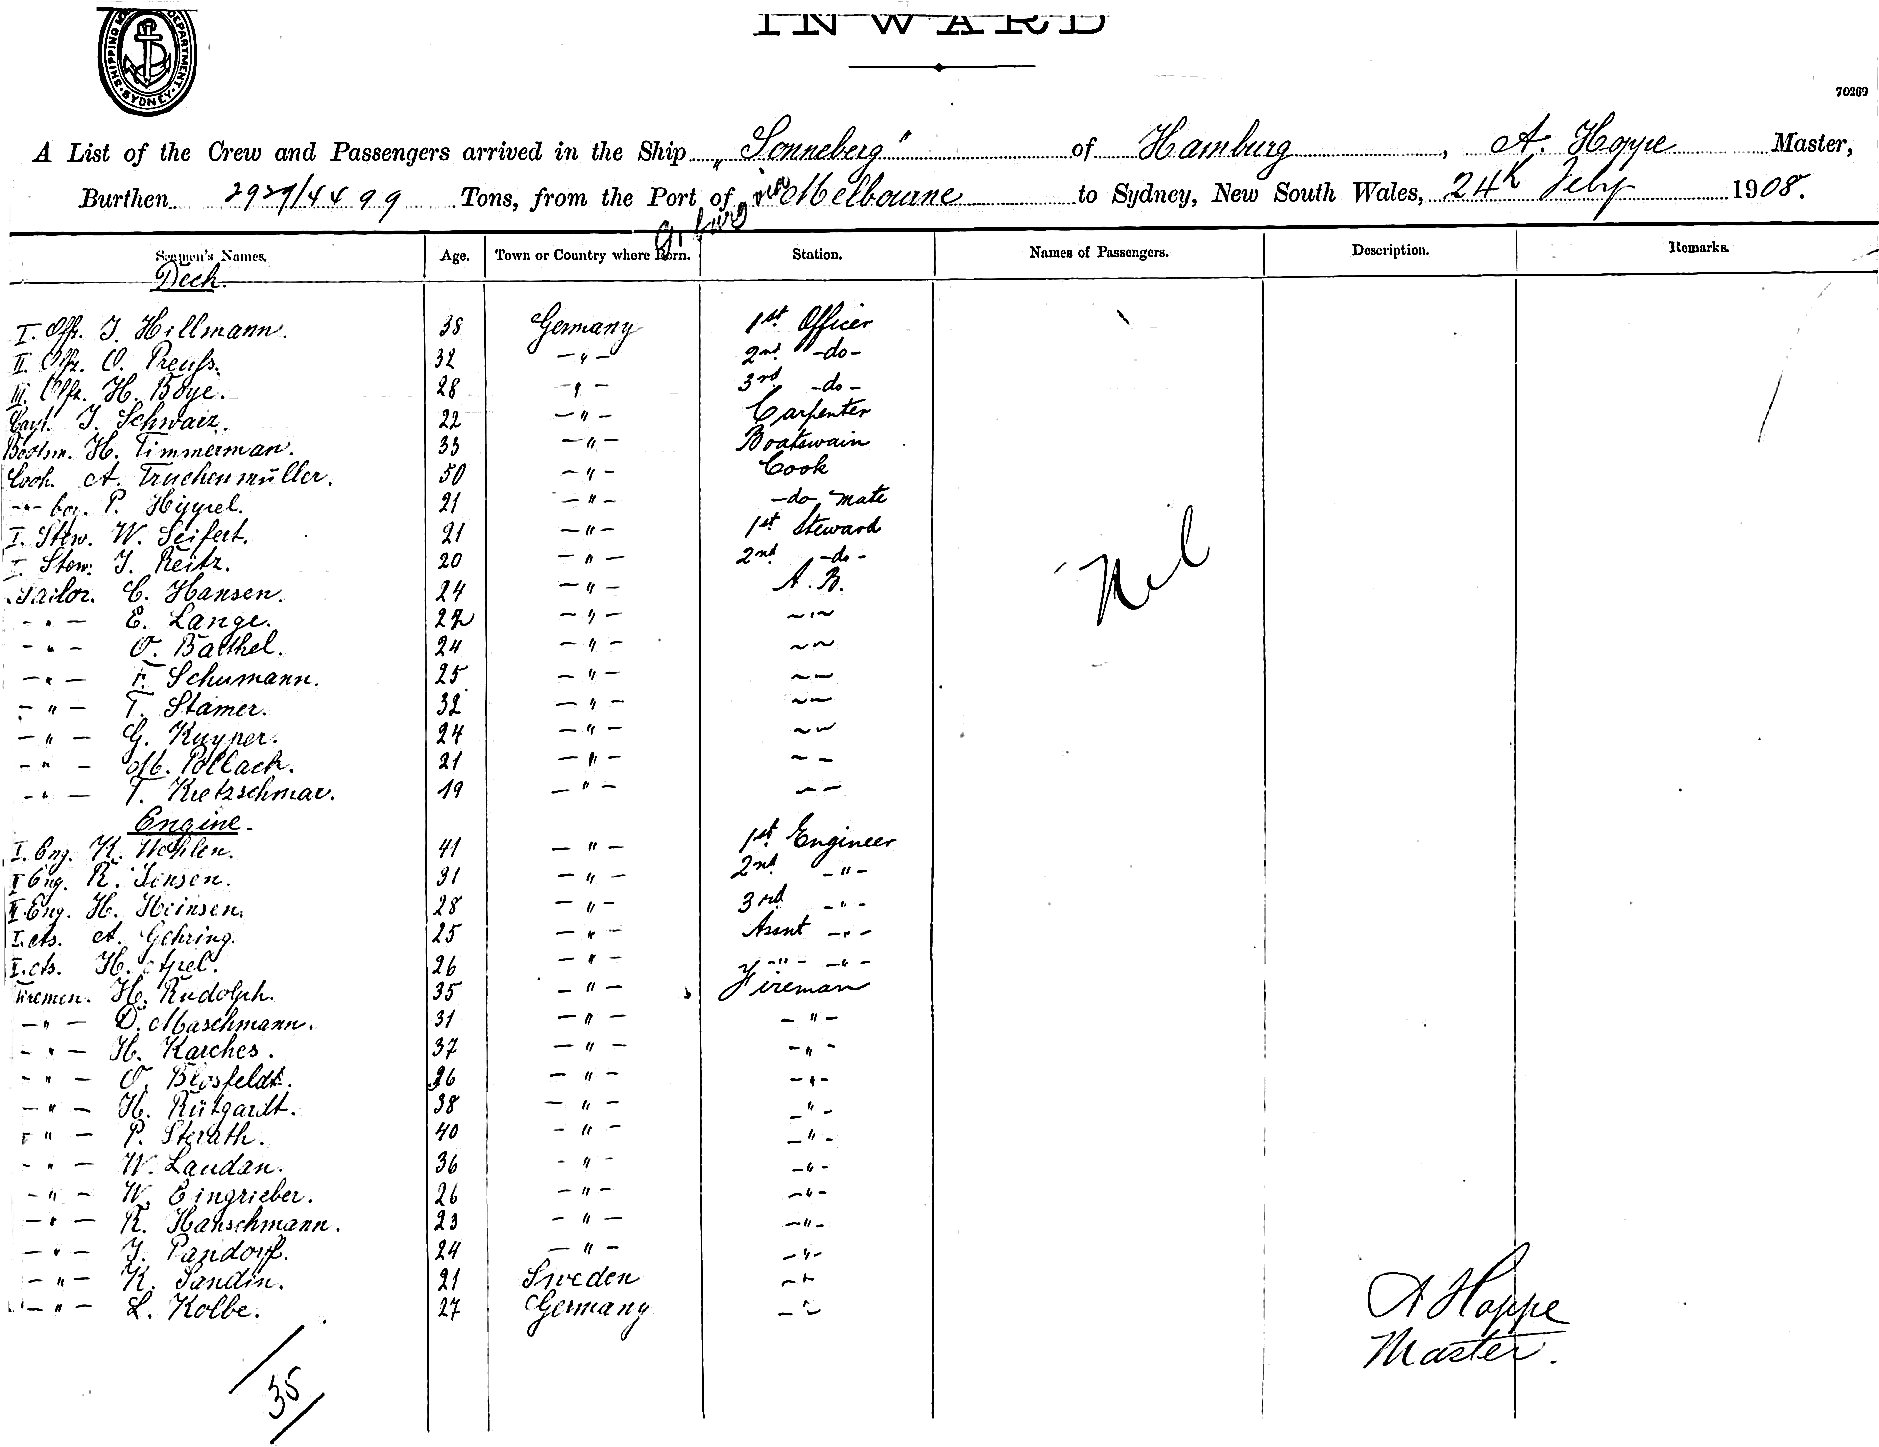 SHIPPING DEPARTMENT SYDNEY
INWARD
70269
A List of the Crew and Passengers arrived in the Ship „Sonneberg" of Hamburg, A. Hoppe Master,
Burthen 2929/4499 Tons, from the Port of via Melbourne to Sydney, New South Wales, 24th Feby 1908.
Seamen's Names. Age. Town or Country where Born. Station. Names of Passengers. Description. Remarks.
Deck.
I. Offr. J. Hillmann. 38 Germany 1st Officer
II. Offz. O. Preuſs. 32 — " — 2nd -do-
III. Offz. H. Boye. 28 — " — 3rd -do-
J. Schwarz. 22 — " — Carpenter
Bootsm. H. Timmerman. 33 — " — Boatswain
Cook. A. Truchenmüller. 50 — " — Cook
-"- boy. P. Hippel. 21 — " — -do- mate
I. Stew. W. Seifert. 21 — " — 1st Steward
I. Stew. J. Reitz. 20 — " — 2nd -do-
Sailor. C. Hansen. 24 — " — A. B.
- " - E. Lange. 22 — " — — " —
- " - O. Barthel. 24 — " — — " —
- " - F. Schumann. 25 — " — — " —
- " - T. Stamer. 32 — " — — " —
- " - G. Kuyper. 24 — " — — " —
- " - M. Pollack. 21 — " — — " —
- " - T. Kretzschmar. 19 — " — — " —
Nil
Engine.
I. Eng. K. Wohlen. 41 — " — 1st Engineer
II Eng. R. Jensen. 31 — " — 2nd - " -
III. Eng. H. Heinsen. 28 — " — 3rd - " -
I. As. A. Gehring. 25 — " — Assnt - " -
I. As. H. Apel. 26 — " — - " - - " -
Firemen. H. Rudolph. 35 — " — Fireman
- " - D. Maschmann. 31 — " — - " -
- " - H. Karches. 37 — " — - " -
- " - O. Blosfeldt. 26 — " — - " -
- " - H. Rütgardt. 38 — " — - " -
- " - P. Sterath. 40 — " — - " -
- " - W. Laudan. 36 — " — - " -
- " - W. Eingrieber. 26 — " — - " -
- " - R. Hanschmann. 23 — " — - " -
- " - J. Pandorf. 24 — " — - " -
- " - K. Sandin. 21 Sweden - " -
- " - L. Kolbe. 27 Germany - " -
A Hoppe
Master.
35